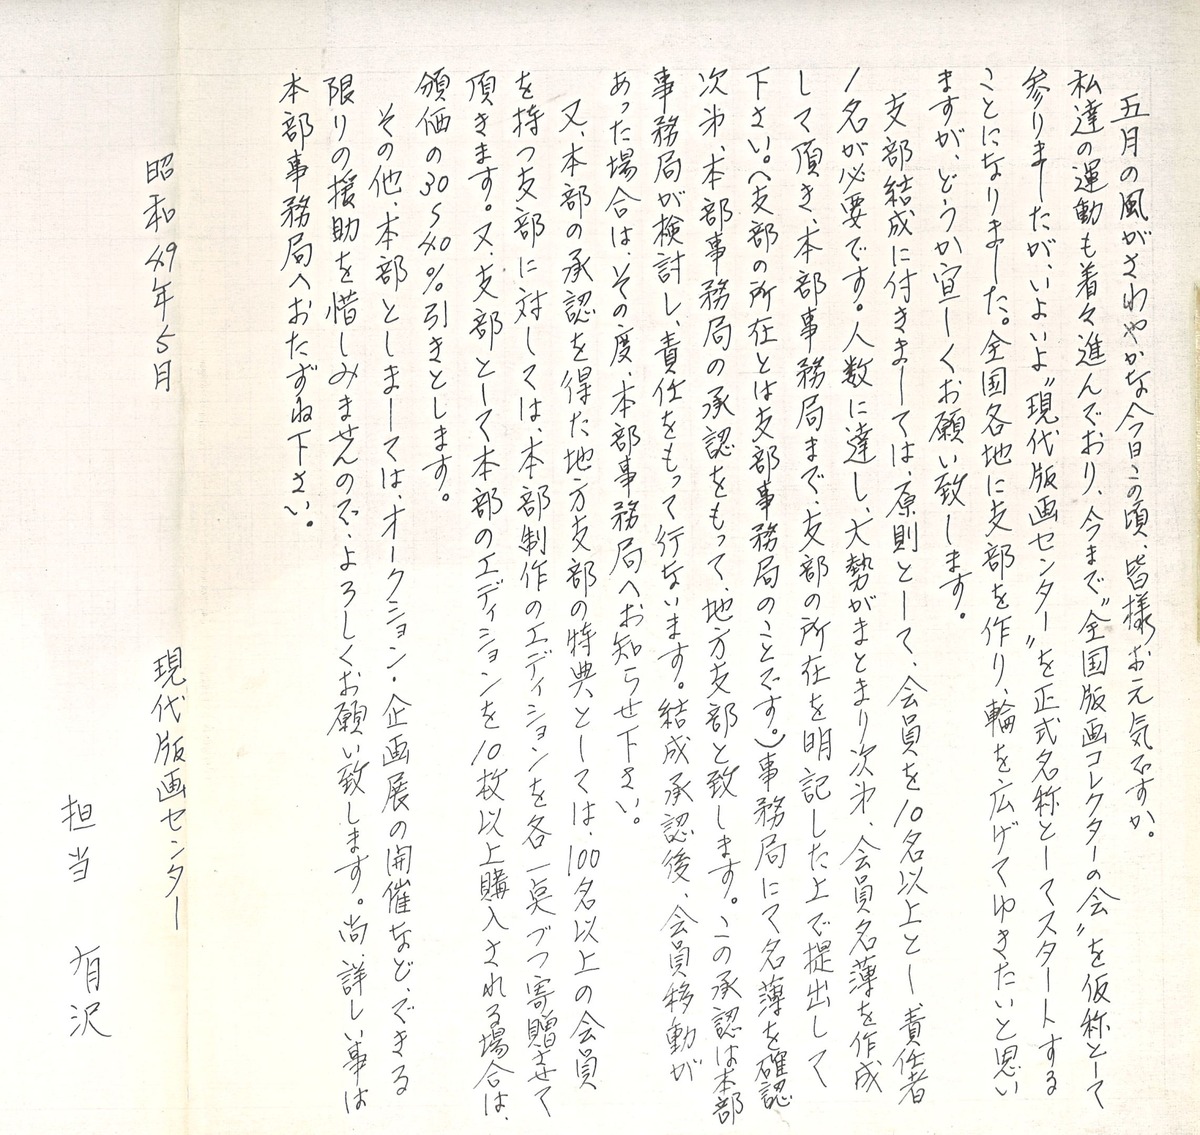 五月の風がさわやかな今日この頃、皆様お元気ですか。
私達の運動も着々進んでおり、今まで〝全国版画コレクターの会〟を仮称として
参りましたが、いよいよ〝現代版画センター〟を正式名称としてスタートする
ことになりました。全国各地に支部を作り、輪を広げてゆきたいと思い
ますが、どうか宜しくお願い致します。
支部結成に付きましては、原則として、会員を10名以上とし、責任者
1名が必要です。人数に達し、大勢がまとまり次第、会員名薄を作成
して頂き、本部事務局まで、支部の所在を明記した上で提出して
下さい。(支部の所在とは支部事務局のことです。)事務局にて名薄を確認
次第、本部事務局の承認をもって、地方支部と致します。この承認は本部
事務局が検討し、責任をもって行ないます。結成承認後、会員移動が
あった場合は、その度、本部事務局へお知らせ下さい。
又、本部の承認を得た地方支部の特典としては、100名以上の会員
を持つ支部に対しては、本部制作のエディションを各一点づつ寄贈させて
頂きます。又、支部として本部のエディションを10枚以上購入される場合は、
頒価の30〜40%引きとします。
その他、本部としましては、オークション・企画展の開催など、できる
限りの援助を惜しみませんので、よろしくお願い致します。尚、詳しい事は
本部事務局へおたずね下さい。
昭和49年5月
現代版画センター
担当 有沢